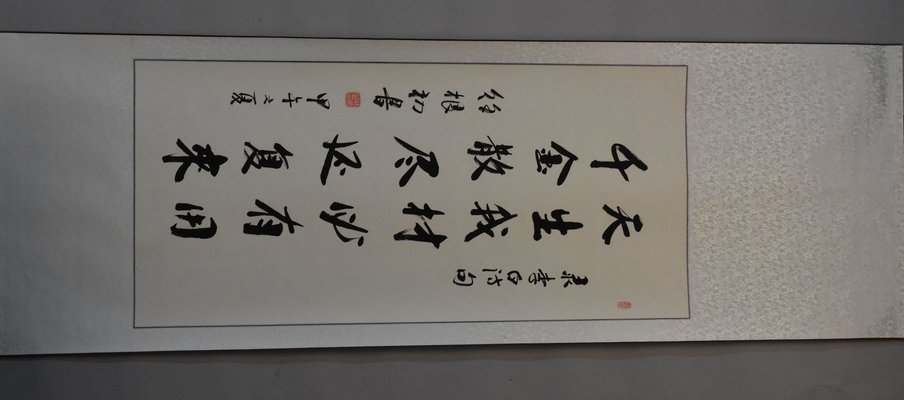 录李白诗句
天生我材必有用
千金散尽还复来
徐根初書
甲午之夏